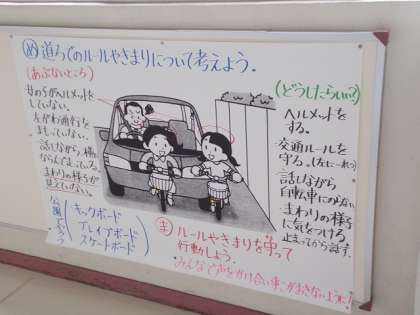 め 道ろでのルールやきまりについて考えよう。
(あぶないところ)
女の子がヘルメットを
していない。
左がわ通行を
まもっていない。
話しながら、横に
ならんでのっている。
まわりの様子が
見えていない。
公園・ろう
キックボード
ブレイブボード
スケートボード
(どうしたらいい?)
ヘルメットを
する。
交通ルールを
守る。(左に一れつ)
話しながら
自転車にのらない
まわりの様子
に気をつける。
止まってから話す。
ま ルールやきまりを守って
行動しよう。
みんなで声をかけ合い事こがおきないように!